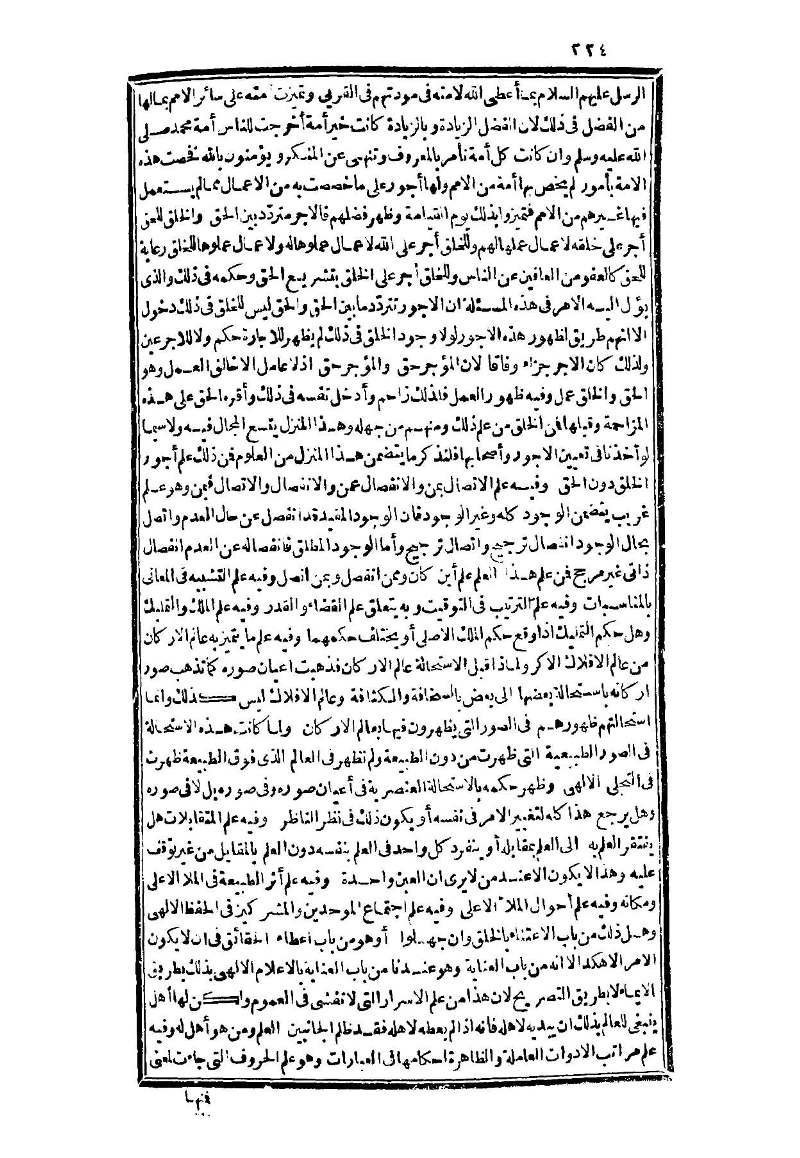 ٢٢٤
الرسل عليهم السلام بما أعطى الله لامته فى مودتهم فى القربى وتميزت امته على سائر الامم بمالها
من الفضل فى ذلك لان الفضل الزيادة وبالزيادة كانت خير أمة أخرجت للناس أمة محمد صلى
الله عليه وسلم وان كانت كل أمة تأمر بالمعروف وتنهى عن المنكر ويؤمنون بالله فخصت هذه
الامة بأمور لم يخص بها أمة من الامم ولها أجور على ما خصصت به من الاعمال مما لم يستعمل
فيها غيرهم من الامم فتميزوا بذلك يوم القيامة وظهر فضلهم فالاجر متردد بين الحق والخلق للحق
أجر على خلقه لاعمال عملها لهم وللخلق أجر على الله لاعمال عملوها له ولاعمال عملوها للخلق رعاية
للحق كالعفو من العافين عن الناس وللخلق أجر على الخلق بتشريع الحق وحكمه فى ذلك والذى
يؤل اليه الامر فى هذه المسئلة ان الاجور تتردد ما بين الحق والحق ليس للخلق فى ذلك دخول
الا انهم طريق لظهور هذه الاجور لولا وجود الخلق فى ذلك لم يظهر للاجارة حكم ولا للاجر عين
ولذلك كان الاجر جزاء وفاقا لان المؤجر حق والمؤجر حق اذ لا عامل الا خالق العمل وهو
الحق والخلق عمل وفيه ظهور العمل فلذلك زاحم وأدخل نفسه فى ذلك وأقره الحق على هذه
المزاحمة وقبلها فمن الخلق من علم ذلك ومنهم من جهله وهذا المنزل يتسع المجال فيه ولاسيما
لو أخذنا فى تعيين الاجور وأصحابها فلنذكر ما يتضمن هذا المنزل من العلوم فمن ذلك علم أجور
الخلق دون الحق وفيه علم الاتصال بمن والانفصال عمن والانفصال والاتصال فيمن وهو علم
غريب يتضمن الوجود كله وغير الوجود فان الوجود المقيد قد انفصل عن حال العدم واتصل
بحال الوجود انفصال ترجيح واتصال ترجيح وأما الوجود المطلق فانفصاله عن العدم انفصال
ذاتى غير مرجح فمن علم هذا العلم علم أين كان وممن انفصل وبمن اتصل وفيه علم التشبيه فى المعانى
بالمناسبات وفيه علم الترتيب فى التوقيت وبه يتعلق علم القضاء والقدر وفيه علم الملك والتمليك
وهل حكم التمليك اذا وقع حكم الملك الاصلى أو يختلف حكمهما وفيه علم ما يتميز به عالم الاركان
من عالم الافلاك الاكر ولماذا قبل الاستحالة عالم الاركان فذهبت اعيان صوره كما تذهب صور
اركانه باستحالة بعضها الى بعض بالسخافة والكثافة وعالم الافلاك ليس كذلك وانما
استحالتهم ظهورهم فى الصور التى يظهرون فيها بعالم الاركان ولما كانت هذه الاستحالة
فى الصور الطبيعية التى ظهرت من دون الطبيعة ولم تظهر فى العالم الذى فوق الطبيعة ظهرت
فى التجلى الالهى وظهر حكمه بالاستحالة العنصرية فى أعيان صوره وفى صوره بل لا فى صوره
وهل يرجع هذا كله لتغيير الامر فى نفسه أو يكون ذلك فى نظر الناظر وفيه علم المتقابلات هل
يفتقر العلم به الى العلم بمقابله أو ينفرد كل واحد فى العلم بنفسه دون العلم بالمقابل من غير توقف
عليه وهذا لا يكون الا عند من لا يرى ان العين واحدة وفيه علم أثر الطبيعة فى الملا الاعلى
ومكانه وفيه علم أحوال الملأ الاعلى وفيه علم اجتماع الموحدين والمشركين فى الحفظ الالهى
وهل ذلك من باب الاعتناء بالخلق وان جهلوا أو هو من باب اعطاء الحقائق فى ان لا يكون
الامر الا هكذا لانه من باب العناية وهو عندنا من باب العناية بالاعلام الالهى بذلك بطريق
الايماء لا بطريق التصريح لان هذا من علم الاسرار التى لا تفشى فى العموم ولكن لها أهل
ينبغى للعالم بذلك ان يبديه لاهله فانه اذا لم يعطه لاهله فقد ظلم الجانبين العلم ومن هو أهل له وفيه
علم مراتب الادوات العاملة والظاهرة احكامها فى العبارات وهو علم الحروف التى جاءت لمعنى
فنها